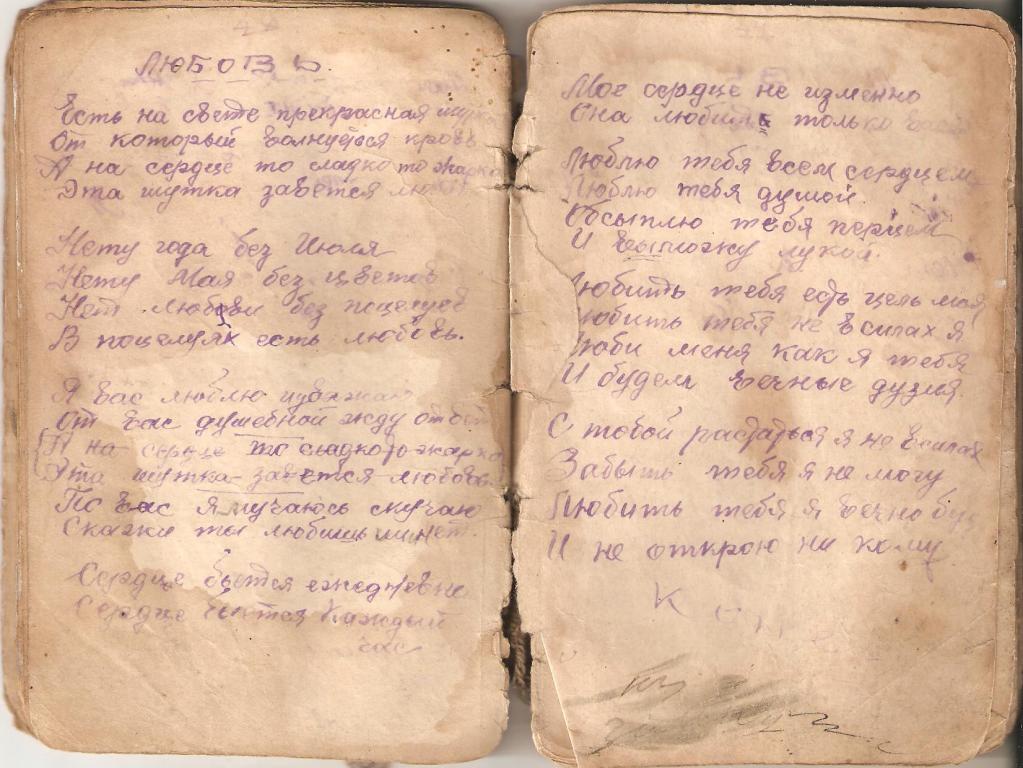 ЛЮБОВЬ.
Есть на свете прекрасная шутка
От который волнуется кровь
А на сердце то сладко то жарко
Эта шутка завется любовь
Нету года без Июля
Нету Мая без цветов
Нет любови без поцелуев
В поцелуях есть любовь.
Я вас люблю
От вас душебной жду ответ
А на серьце то сладко то жарко
Эта шутка завется любовь
По вас я мучаюсь скучаю
Скажи ты любишь или нет.
Сердце бьется ежедневно
Сердце бьется каждый
час
Мое сердце не изменно
Она любит только вас
Люблю тебя всем сердцем
Люблю тебя душой.
Обсыплю тебя перцем
И
Любить тебя есть цель моя
Любить тебя не в силах я
Люби меня как я тебя
И будем вечные друзия.
С тобой растаться я не в силах
Забыть тебя я не могу
Любить тебя я вечно буду
И не открою ни кому